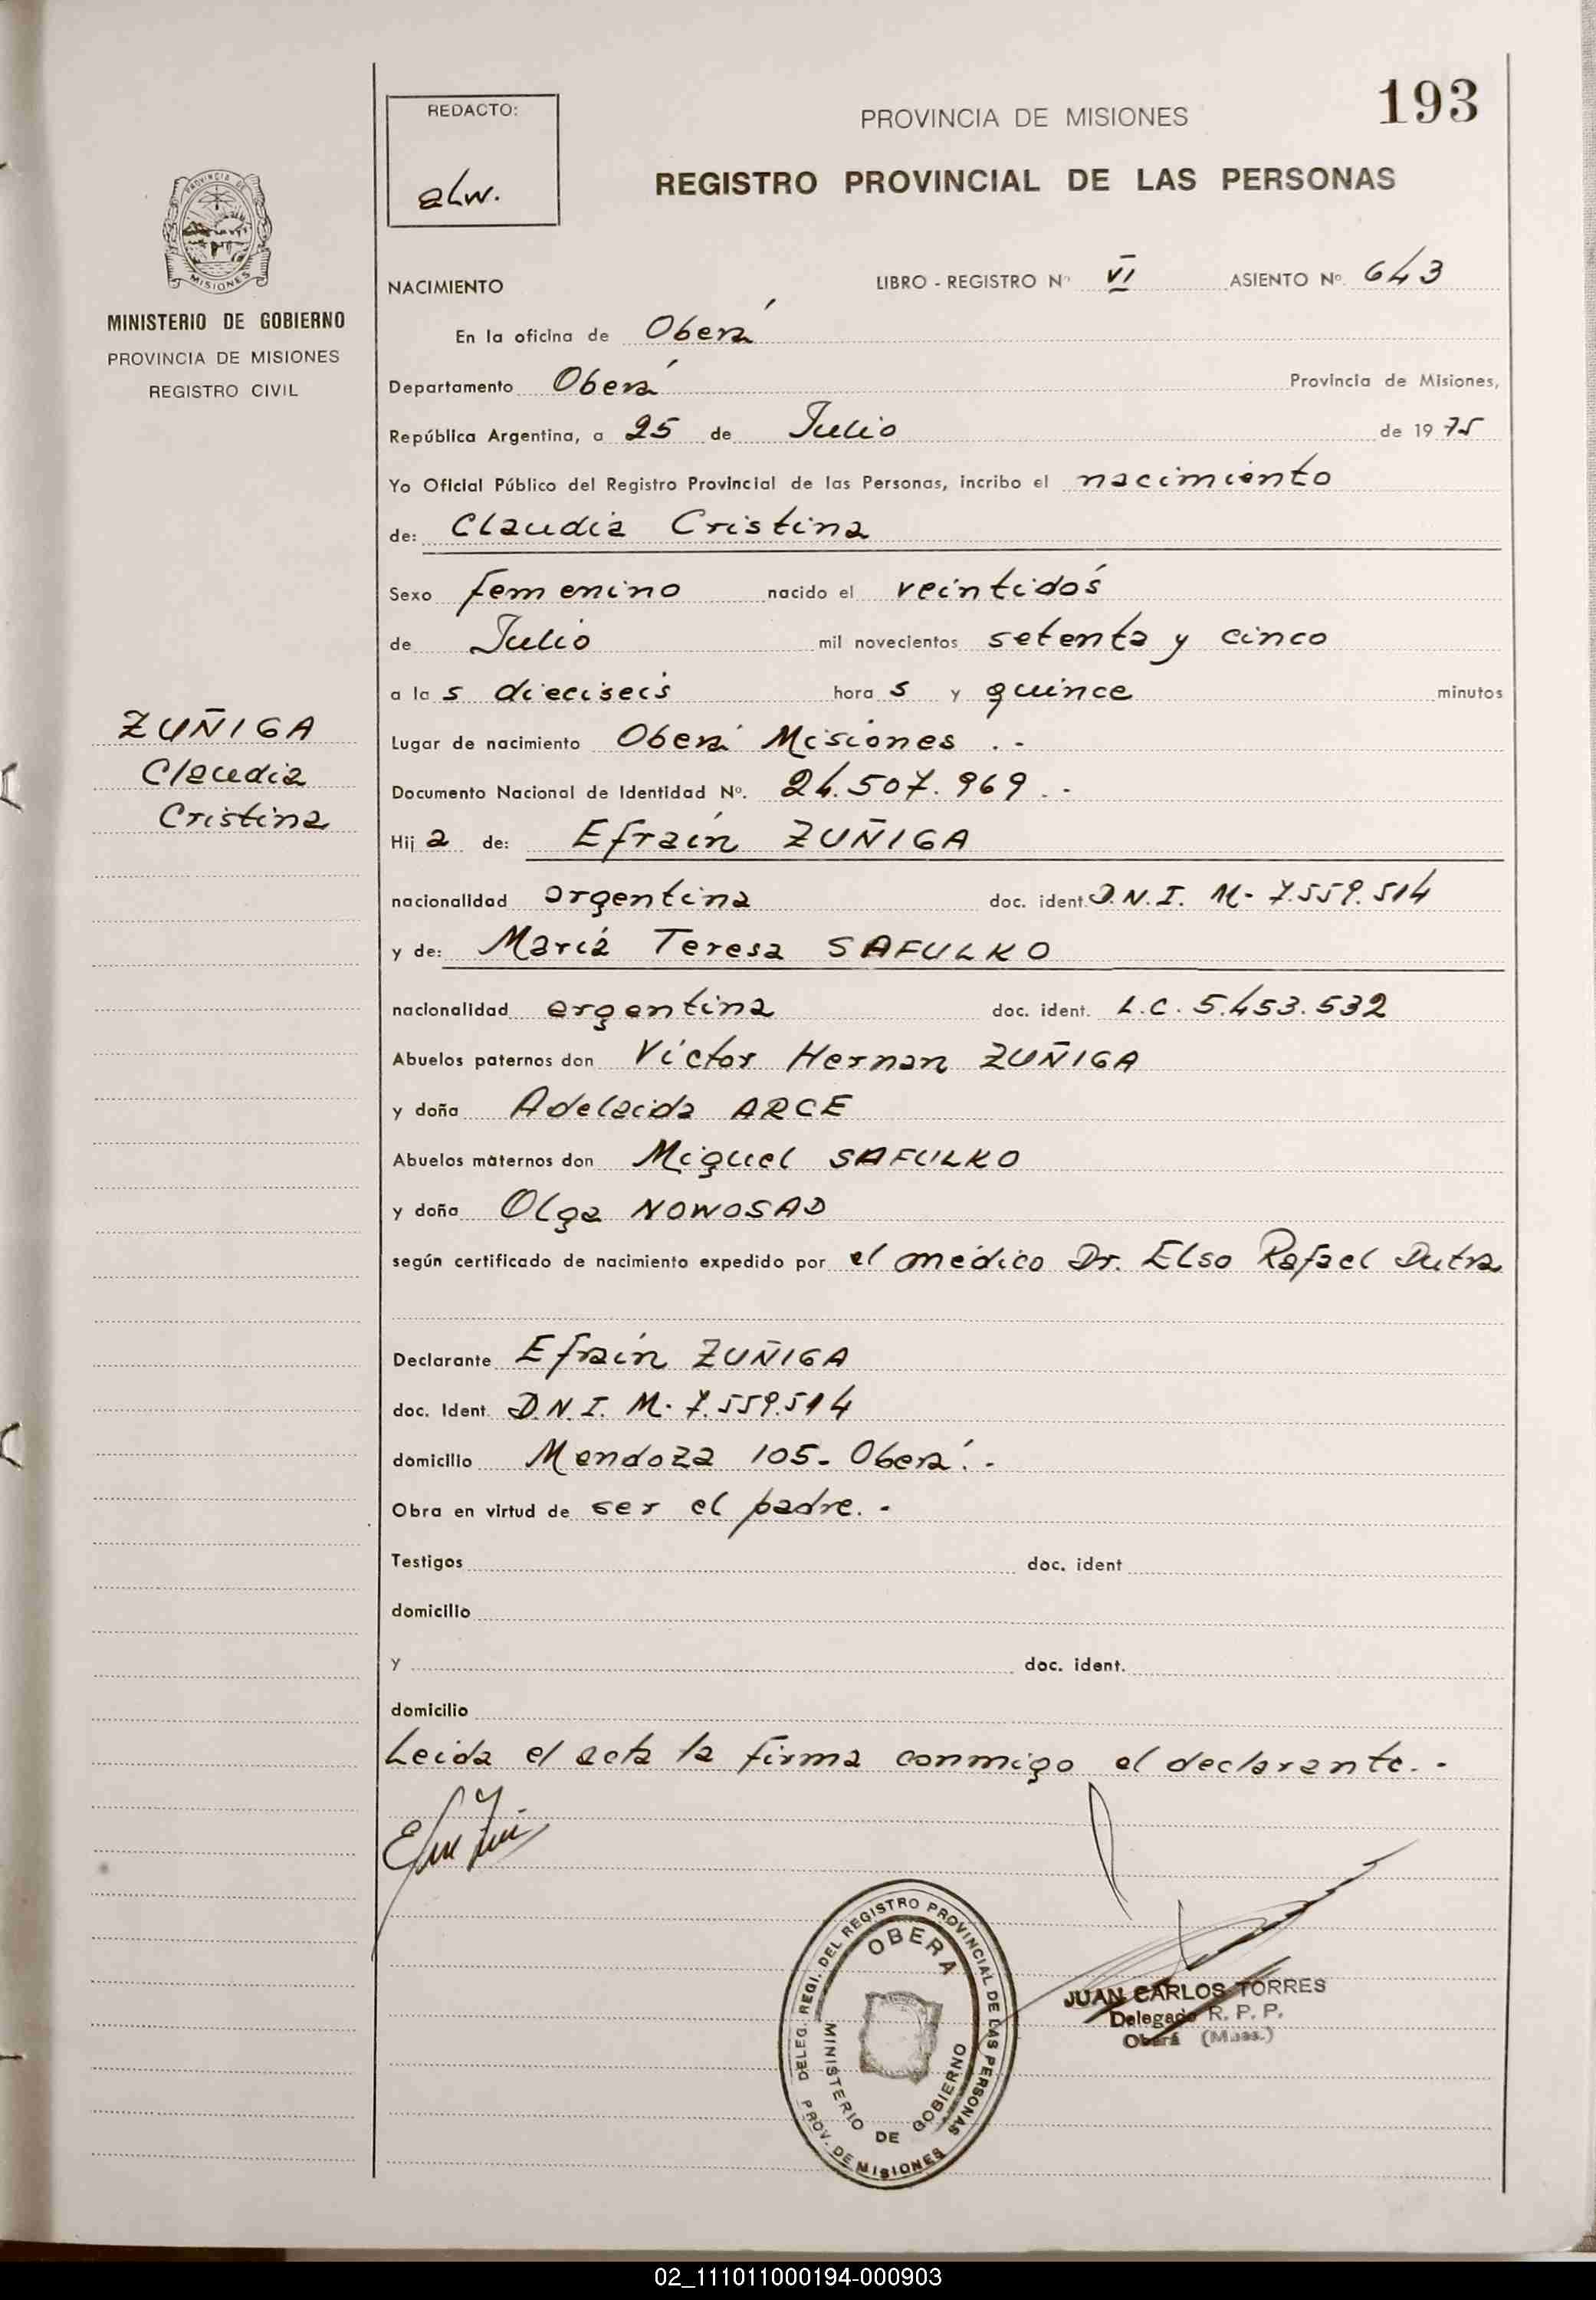 REDACTO:
alw.
PROVINCIA DE MISIONES
193
REGISTRO PROVINCIAL DE LAS PERSONAS
PROVINCIA DE
MISIONES
MINISTERIO DE GOBIERNO
PROVINCIA DE MISIONES
REGISTRO CIVIL
NACIMIENTO LIBRO - REGISTRO Nº VI ASIENTO Nº. 643
En la oficina de Oberá
Departamento Oberá Provincia de Misiones,
República Argentina, a 25 de Julio de 1975
Yo Oficial Público del Registro Provincial de las Personas, incribo el nacimiento
de: Claudia Cristina
Sexo femenino nacido el veintidós
de Julio mil novecientos setenta y cinco
a las dieciseis horas y quince minutos
Lugar de nacimiento Oberá Misiones . -
Documento Nacional de Identidad Nº. 24.507.969 . -
ZUÑIGA
Claudia
Cristina
Hija de: Efraín ZUÑIGA
nacionalidad argentina doc. ident. D.N.I. M- 7.559.514
y de: María Teresa SAFULKO
nacionalidad argentina doc. ident. L.C. 5.453.532
Abuelos paternos don Víctor Hernan ZUÑIGA
y doña Adelaida ARCE
Abuelos maternos don Miguel SAFULKO
y doña Olga NOWOSAD
según certificado de nacimiento expedido por el médico Dr. Elso Rafael Dutra
Declarante Efraín ZUÑIGA
doc. Ident. D.N.I. M- 7.559.514
domicilio Mendoza 105- Oberá. -
Obra en virtud de ser el padre. -
Testigos doc. ident
domicilio
y doc. ident.
domicilio
Leida el acta la firma conmigo el declarante. -
DELEG. REGI. DEL REGISTRO PROVINCIAL DE LAS PERSONAS
OBERA
MINISTERIO DE GOBIERNO
PROV. DE MISIONES
JUAN CARLOS TORRES
Delegado R. P. P.
Oberá (Mnes.)
02_111011000194-000903